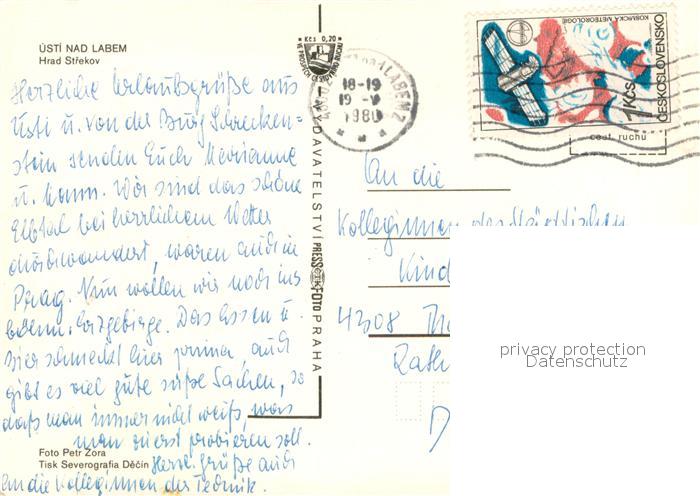 ÚSTÍ NAD LABEM
Hrad Střekov
Herzliche Urlaubsgrüße aus
Usti u. von der Burg Schrecken-
stein senden Euch Marianne
u. Mann. Wir sind das schöne
Elbtal bei herrlichem Wetter
durchwandert, waren auch in
Prag. Nun wollen wir noch ins
böhm. Erzgebirge. Das Essen u.
Bier schmeckt hier prima, auch
gibt es viel gute süße Sachen, so
daß man immer nicht weiß, was
man zuerst probieren soll.
Herzl. Grüße auch
an die Kolleginnen der Technik.
Foto Petr Zora
Tisk Severografia Děčín
Kčs 0,20
VYDAVATELSTVÍ PRESSFOTO PRAHA
1980
KOSMICKÁ METEOROLOGIE
1 Kčs
ČESKOSLOVENSKO
cest. ruchu
An die
Kolleginnen der Städtischen
Kind
4308 Th
Rath
D
privacy protection
Datenschutz